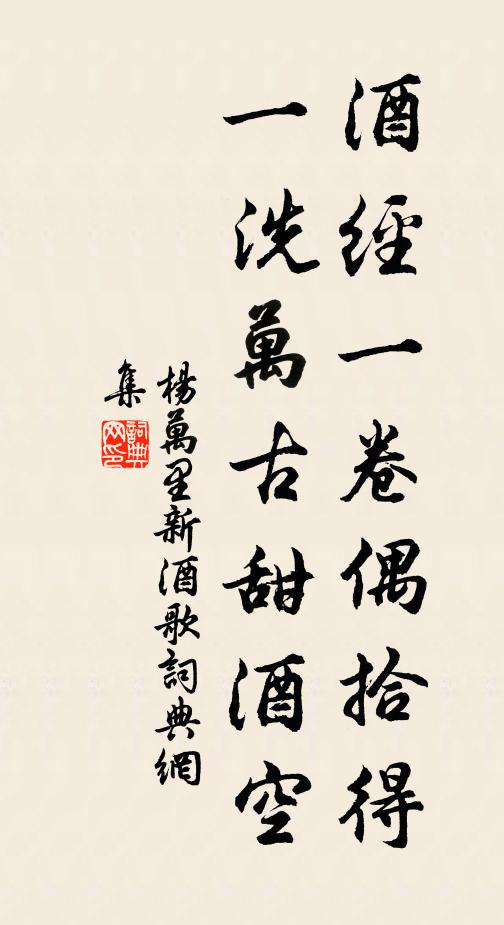 酒經一卷偶拾得
一洗萬古甜酒空
楊萬里新酒歌詞典網
集
詞典
网印